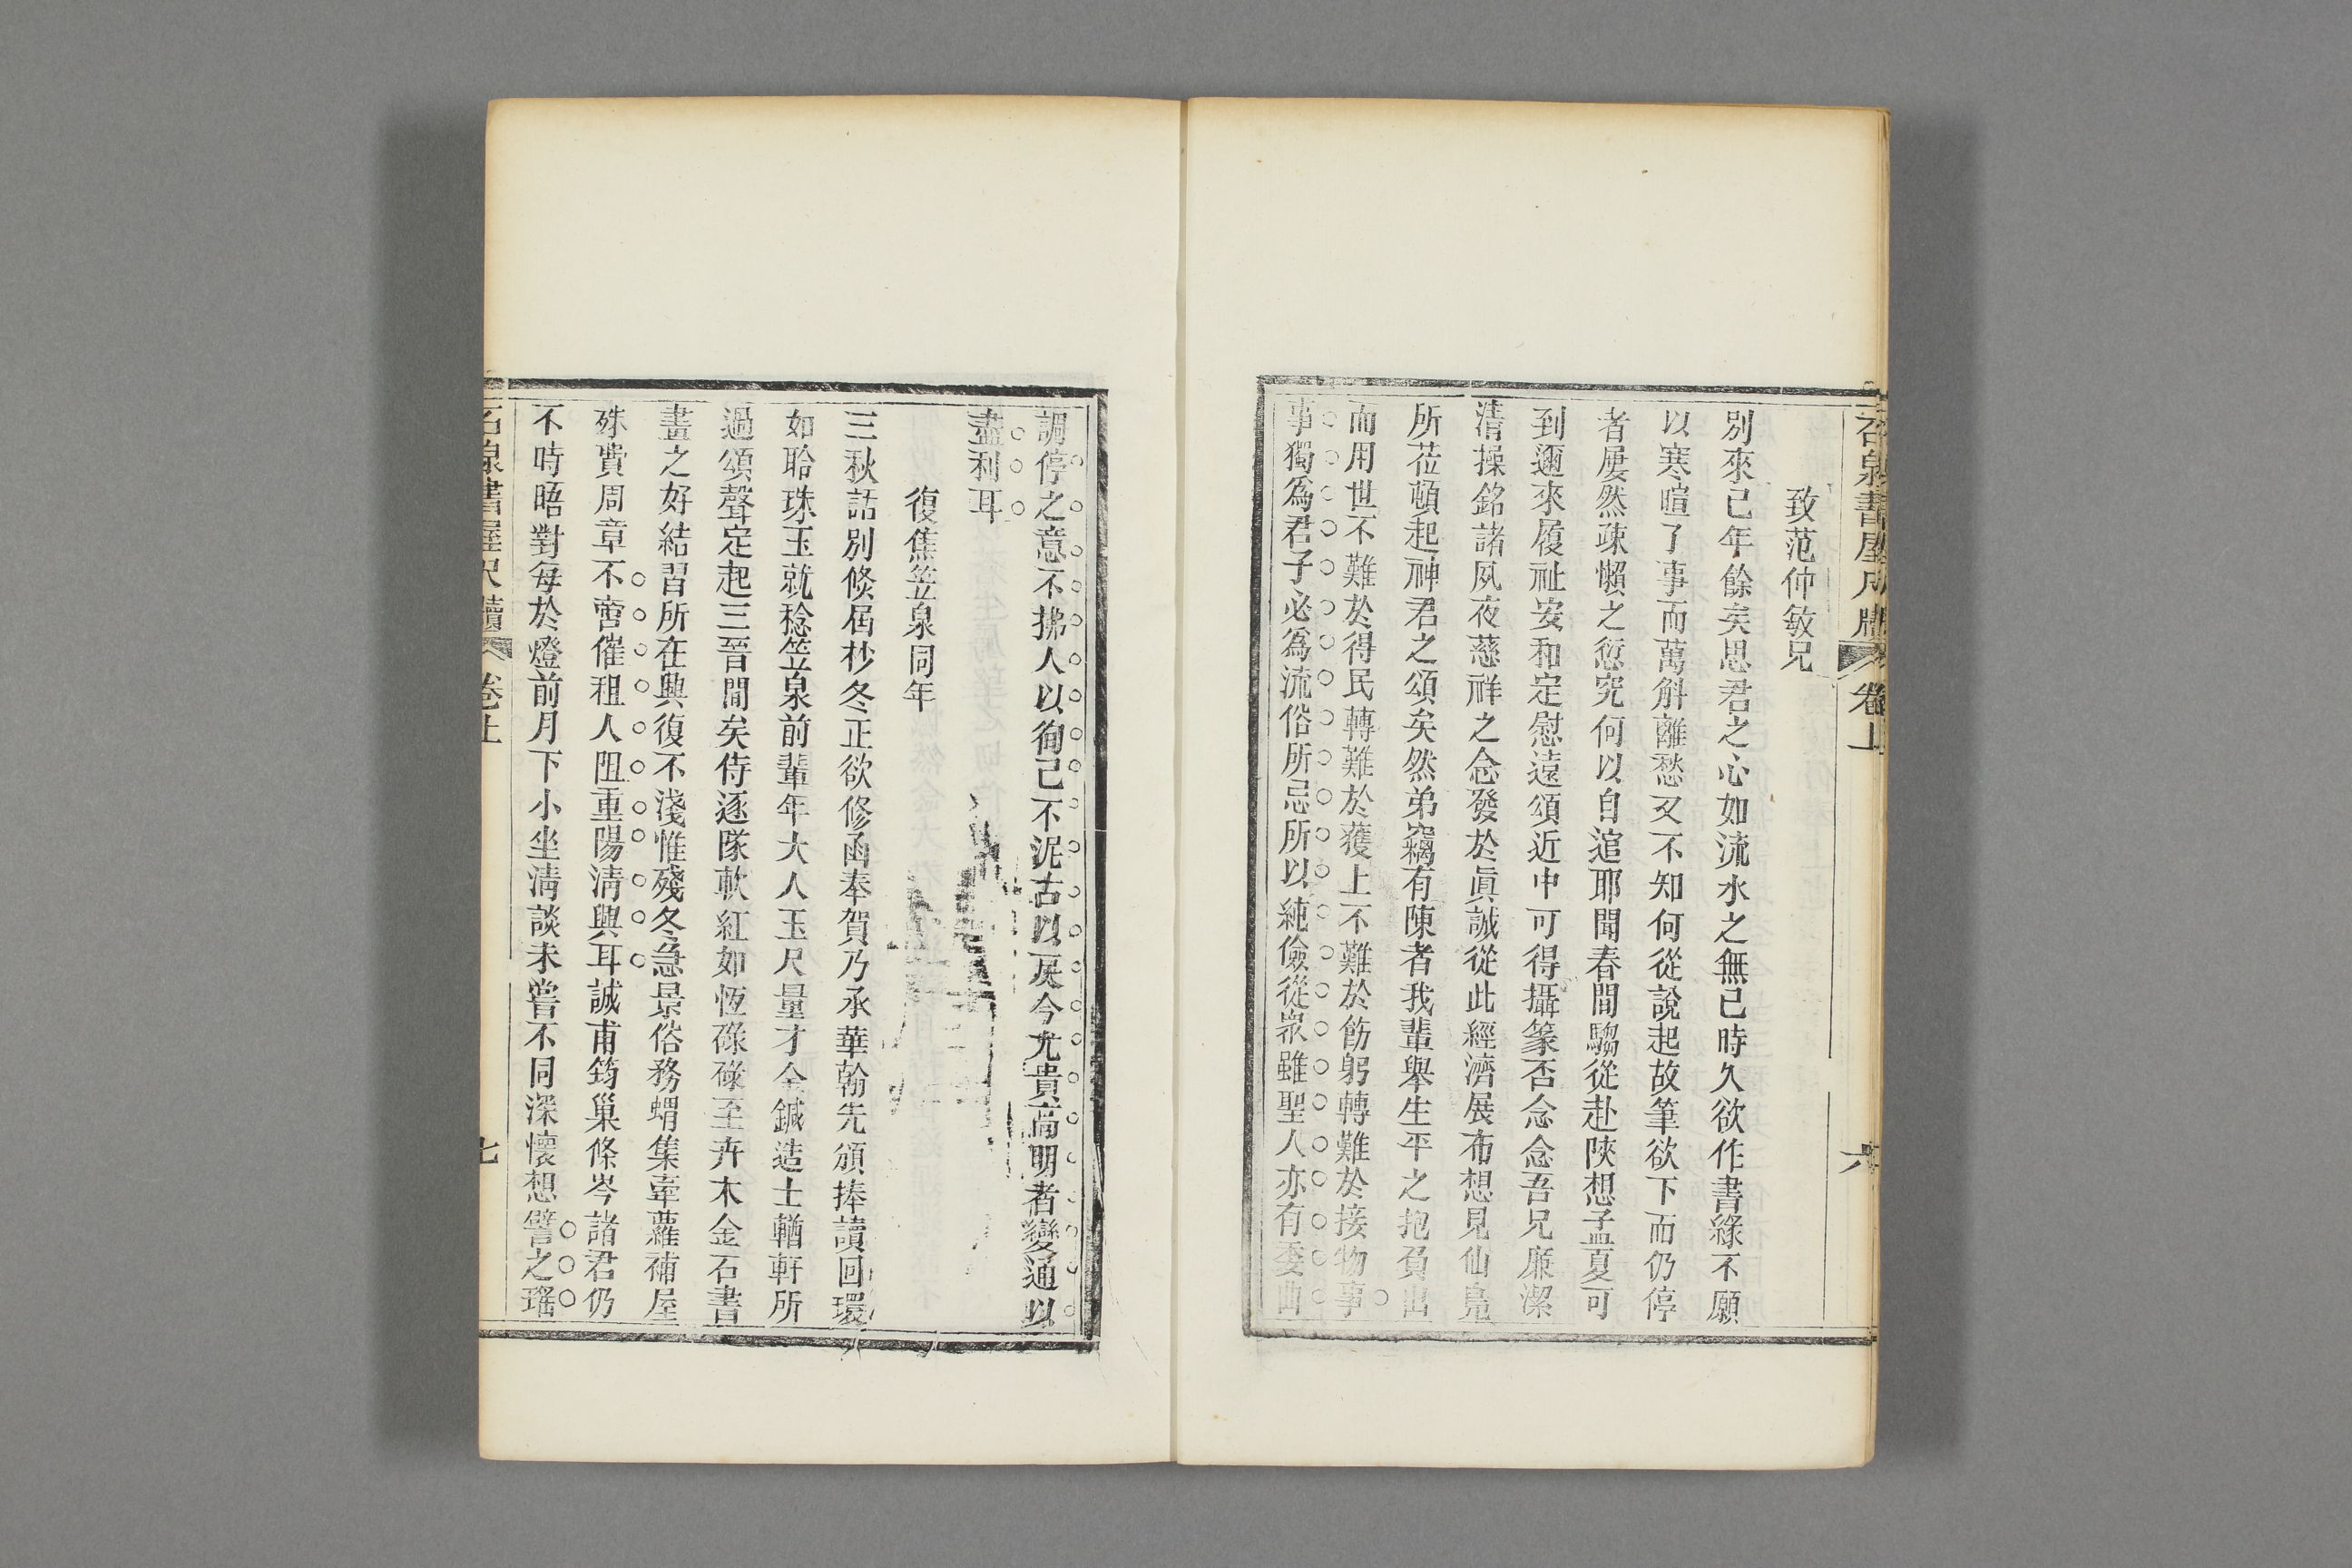 石泉書屋尺牘 卷上 六
致范仲敏兄
別來已年餘矣思君之心如流水之無已時久欲作書緣不願
以寒暄了事而萬斛離愁又不知何從說起故筆欲下而仍停
者屢然疎懶之愆究何以自逭耶聞春間騶從赴陝想孟夏可
到邇來履祉安和定慰遠頌近中可得攝篆否念念吾兄廉潔
清操銘諸夙夜慈祥之念發於眞誠從此經濟展布想見仙鳧
所莅頓起神君之頌矣然弟竊有陳者我輩舉生平之抱負出
而用世不難於得民轉難於獲上不難於飭躬轉難於接物事
事獨爲君子必爲流俗所忌所以純儉從衆雖聖人亦有委曲
調停之意不拂人以徇己不泥古以戾今尤貴高明者變通以
盡利耳
復焦笠泉同年
三秋話別倐屆杪冬正欲修函奉賀乃承華翰先頒捧讀回環
如聆珠玉就稔笠泉前輩年大人玉尺量才金鍼造士輶軒所
過頌聲定起三晉間矣侍逐隊軟紅如恆碌碌至卉木金石書
畫之好結習所在興復不淺惟殘冬急景俗務蝟集牽蘿補屋
殊費周章不啻催租人阻重陽清興耳誠甫筠巢條岑諸君仍
不時晤對每於燈前月下小坐清談未嘗不同深懷想譬之瑤
石泉書屋尺牘 卷上 七